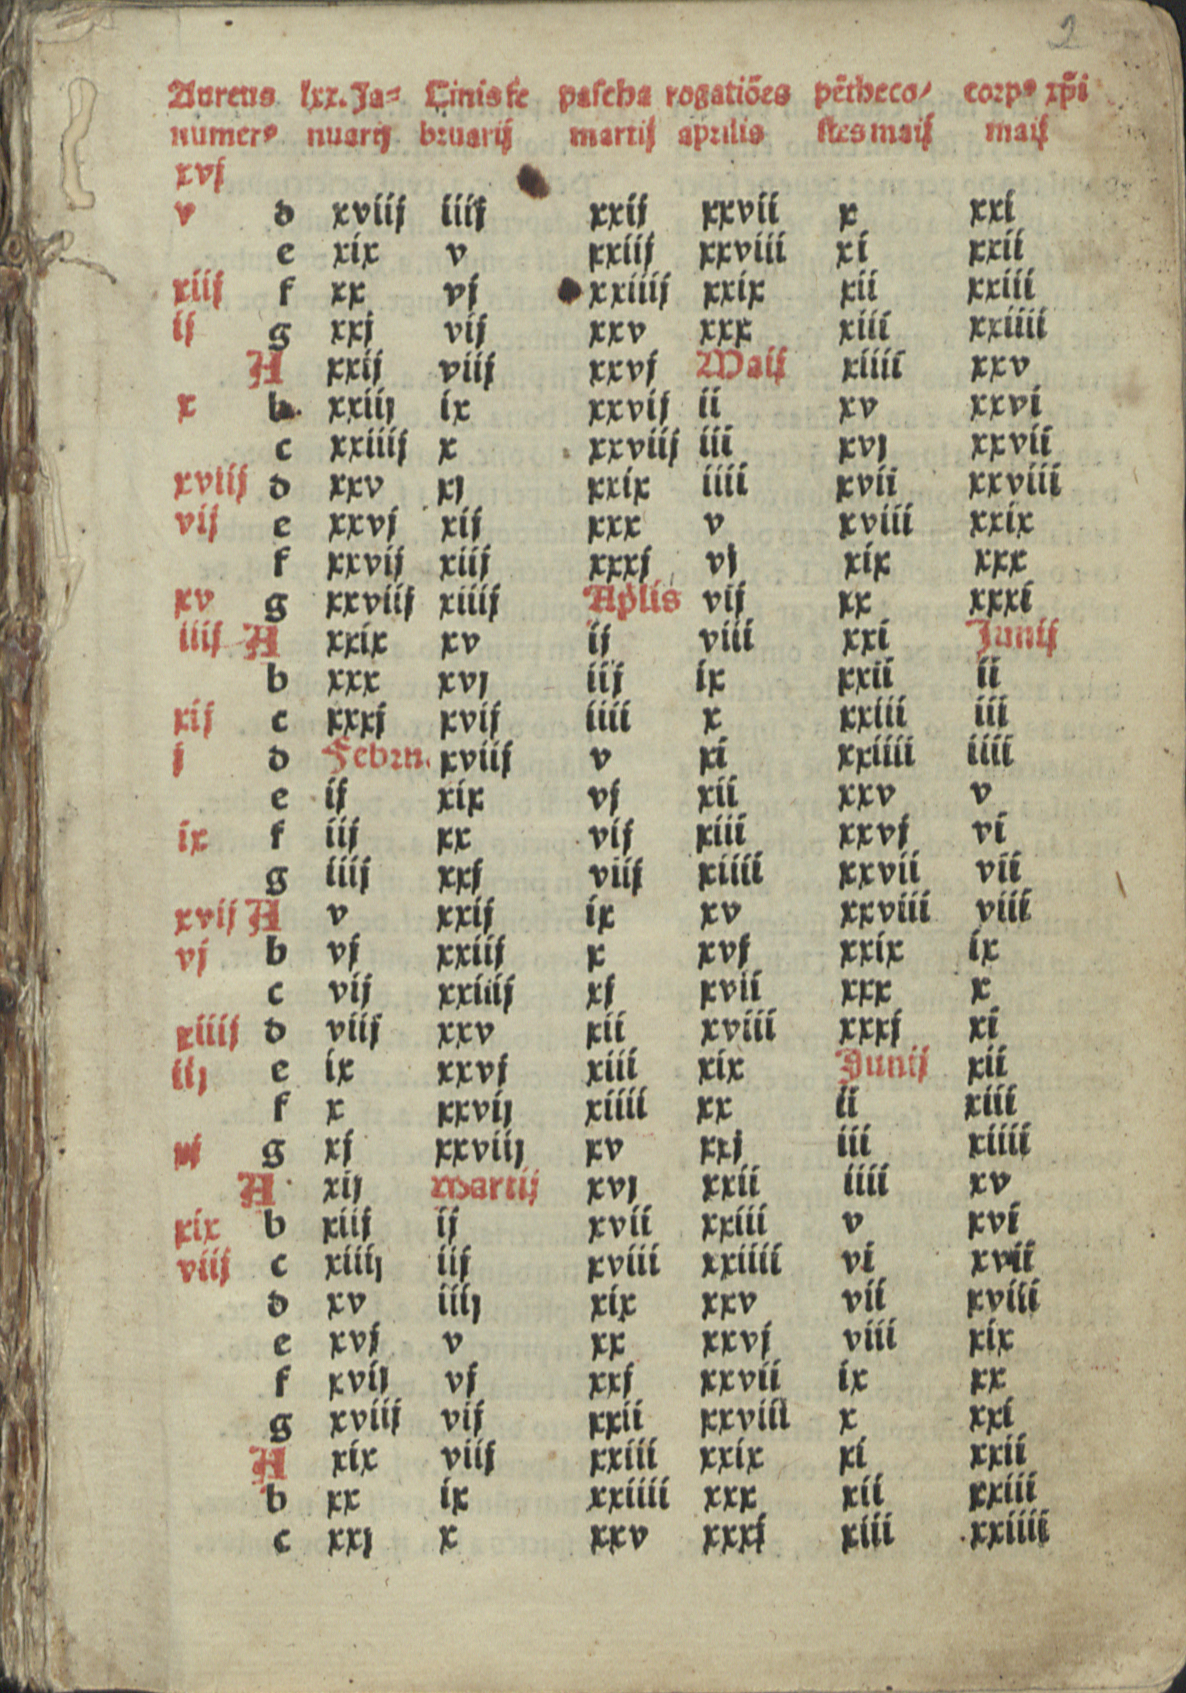 2
Aureus lxx. Ja⸗ Cinis fe pascha rogatiões pẽtheco/ corpꝰ xp̃i
numerꝰ nuarij bruarij martij aprilis stes maij maij
xvj
v d xviij iiij xxij xxvii x xxi
e xix v xxiij xxviii xi xxii
xiij f xx vj xxiiij xxix xii xxiii
ij g xxj vij xxv xxx xiii xxiiii
A xxij viij xxvj Maij xiiii xxv
x b xxiij ix xxvij ii xv xxvi
c xxiiij x xxviij iii xvj xxvii
xviij d xxv xj xxix iiii xvii xxviii
vij e xxvj xij xxx v xviii xxix
f xxvij xiij xxxj vj xix xxx
xv g xxviij xiiij Ap̃lis vij xx xxxi
iiij A xxix xv ij viii xxi Junij
b xxx xvj iij ix xxii ii
xij c xxxj xvij iiii x xxiii iii
j d Febru. xviij v xi xxiiii iiii
e ij xix vj xii xxv v
ix f iij xx vij xiii xxvj vi
g iiij xxj viij xiiii xxvii vii
xvij A v xxij ix xv xxviii viii
vj b vj xxiij x xvj xxix ix
c vij xxiiij xj xvii xxx x
xiiij d viij xxv xii xviii xxxj xi
iij e ix xxvj xiii xix Junij xii
f x xxvij xiiii xx ii xiii
xj g xj xxviij xv xxj iii xiiii
A xij Martij xvj xxii iiii xv
xix b xiij ij xvii xxiii v xvi
viij c xiiij iij xviii xxiiii vi xvii
d xv iiij xix xxv vii xviii
e xvj v xx xxvj viii xix
f xvij vj xxj xxvii ix xx
g xviij vij xxii xxviii x xxi
A xix viij xxiii xxix xi xxii
b xx ix xxiiii xxx xii xxiii
c xxj x xxv xxxj xiii xxiiii